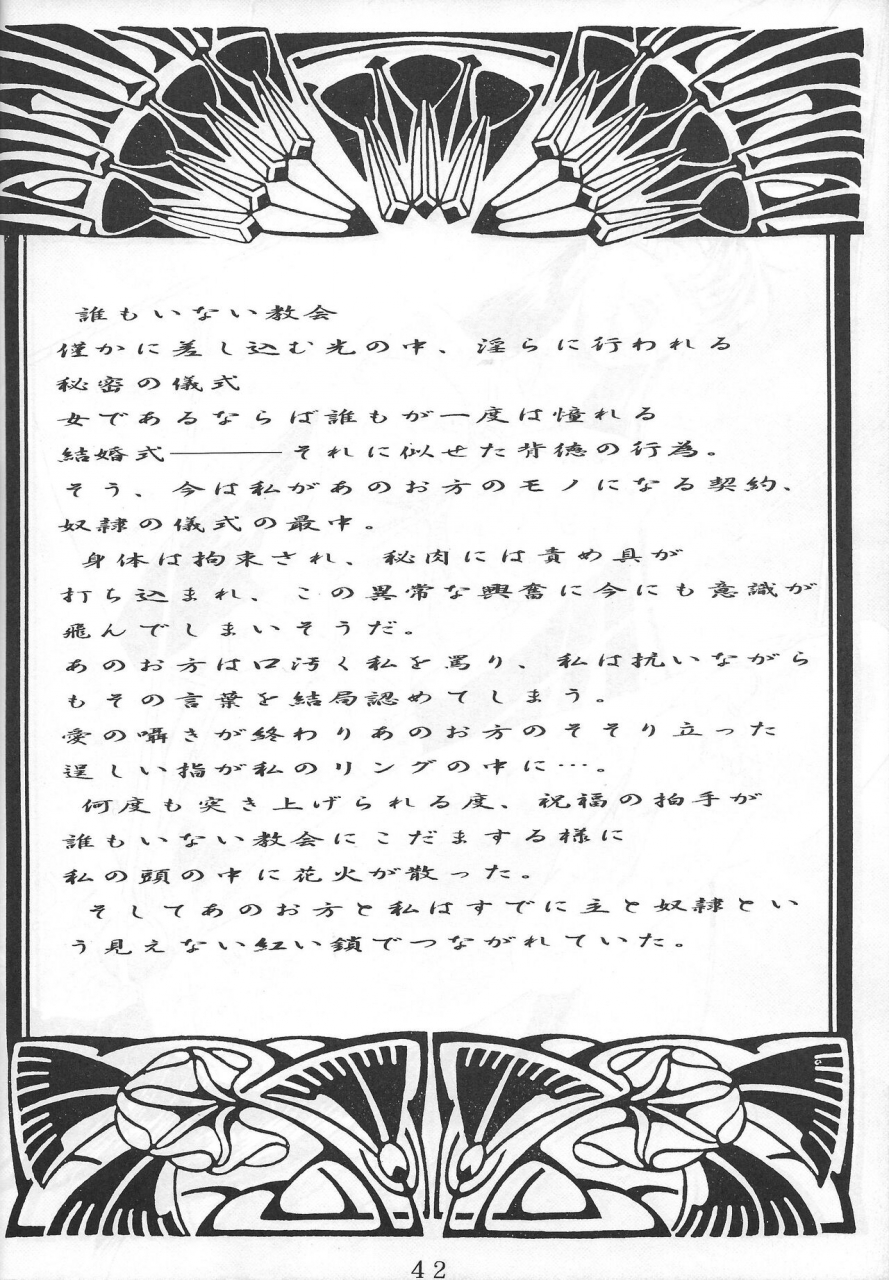 誰もいない教会
僅かに差し込む光の中、淫らに行われる
秘密の儀式
女であるならば誰もが一度は憧れる
結婚式————それに似せた背徳の行為。
そう、今は私があのお方のモノになる契約、
奴隷の儀式の最中。
身体は拘束され、秘肉には責め具が
打ち込まれ、この異常な興奮に今にも意識が
飛んでしまいそうだ。
あのお方は口汚く私を罵り、私は抗いながら
もその言葉を結局認めてしまう。
愛の囁きが終わりあのお方のそそり立った
逞しい指が私のリングの中に…。
何度も突き上げられる度、祝福の拍手が
誰もいない教会にこだまする様に
私の頭の中に花火が散った。
そしてあのお方と私はすでに主と奴隷とい
う見えない紅い鎖でつながれていた。
42